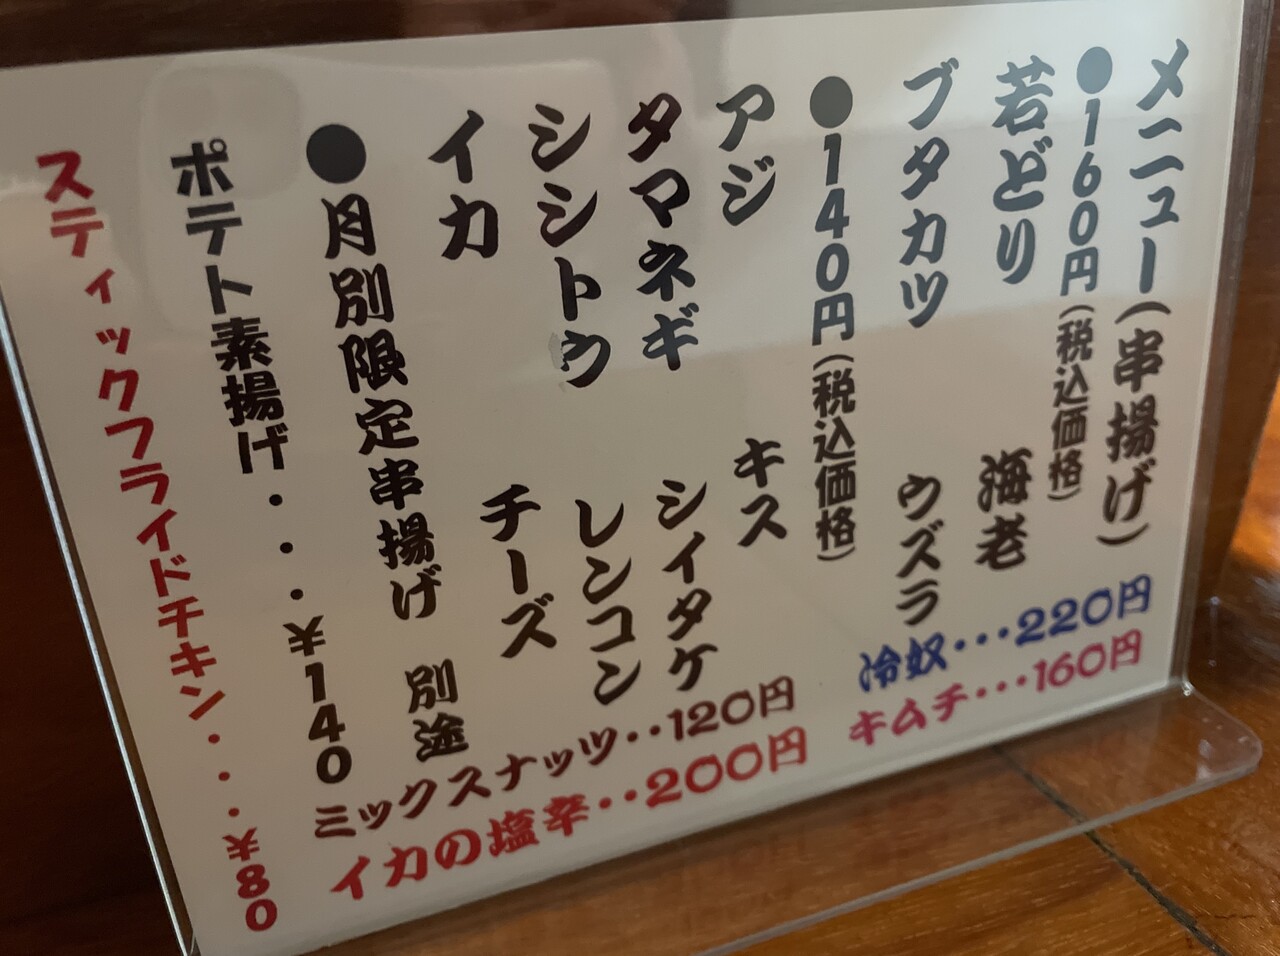 メニュー(串揚げ)
●160円(税込価格)
若どり　海老
ブタカツ　ウズラ
●140円(税込価格)
アジ　キス
タマネギ　シイタケ
シシトウ　レンコン
イカ　チーズ
●月別限定串揚げ　別途
ポテト素揚げ・・・￥140
スティックフライドチキン・・・￥80
冷奴・・・220円
キムチ・・・160円
ミックスナッツ・・120円
イカの塩辛・・200円